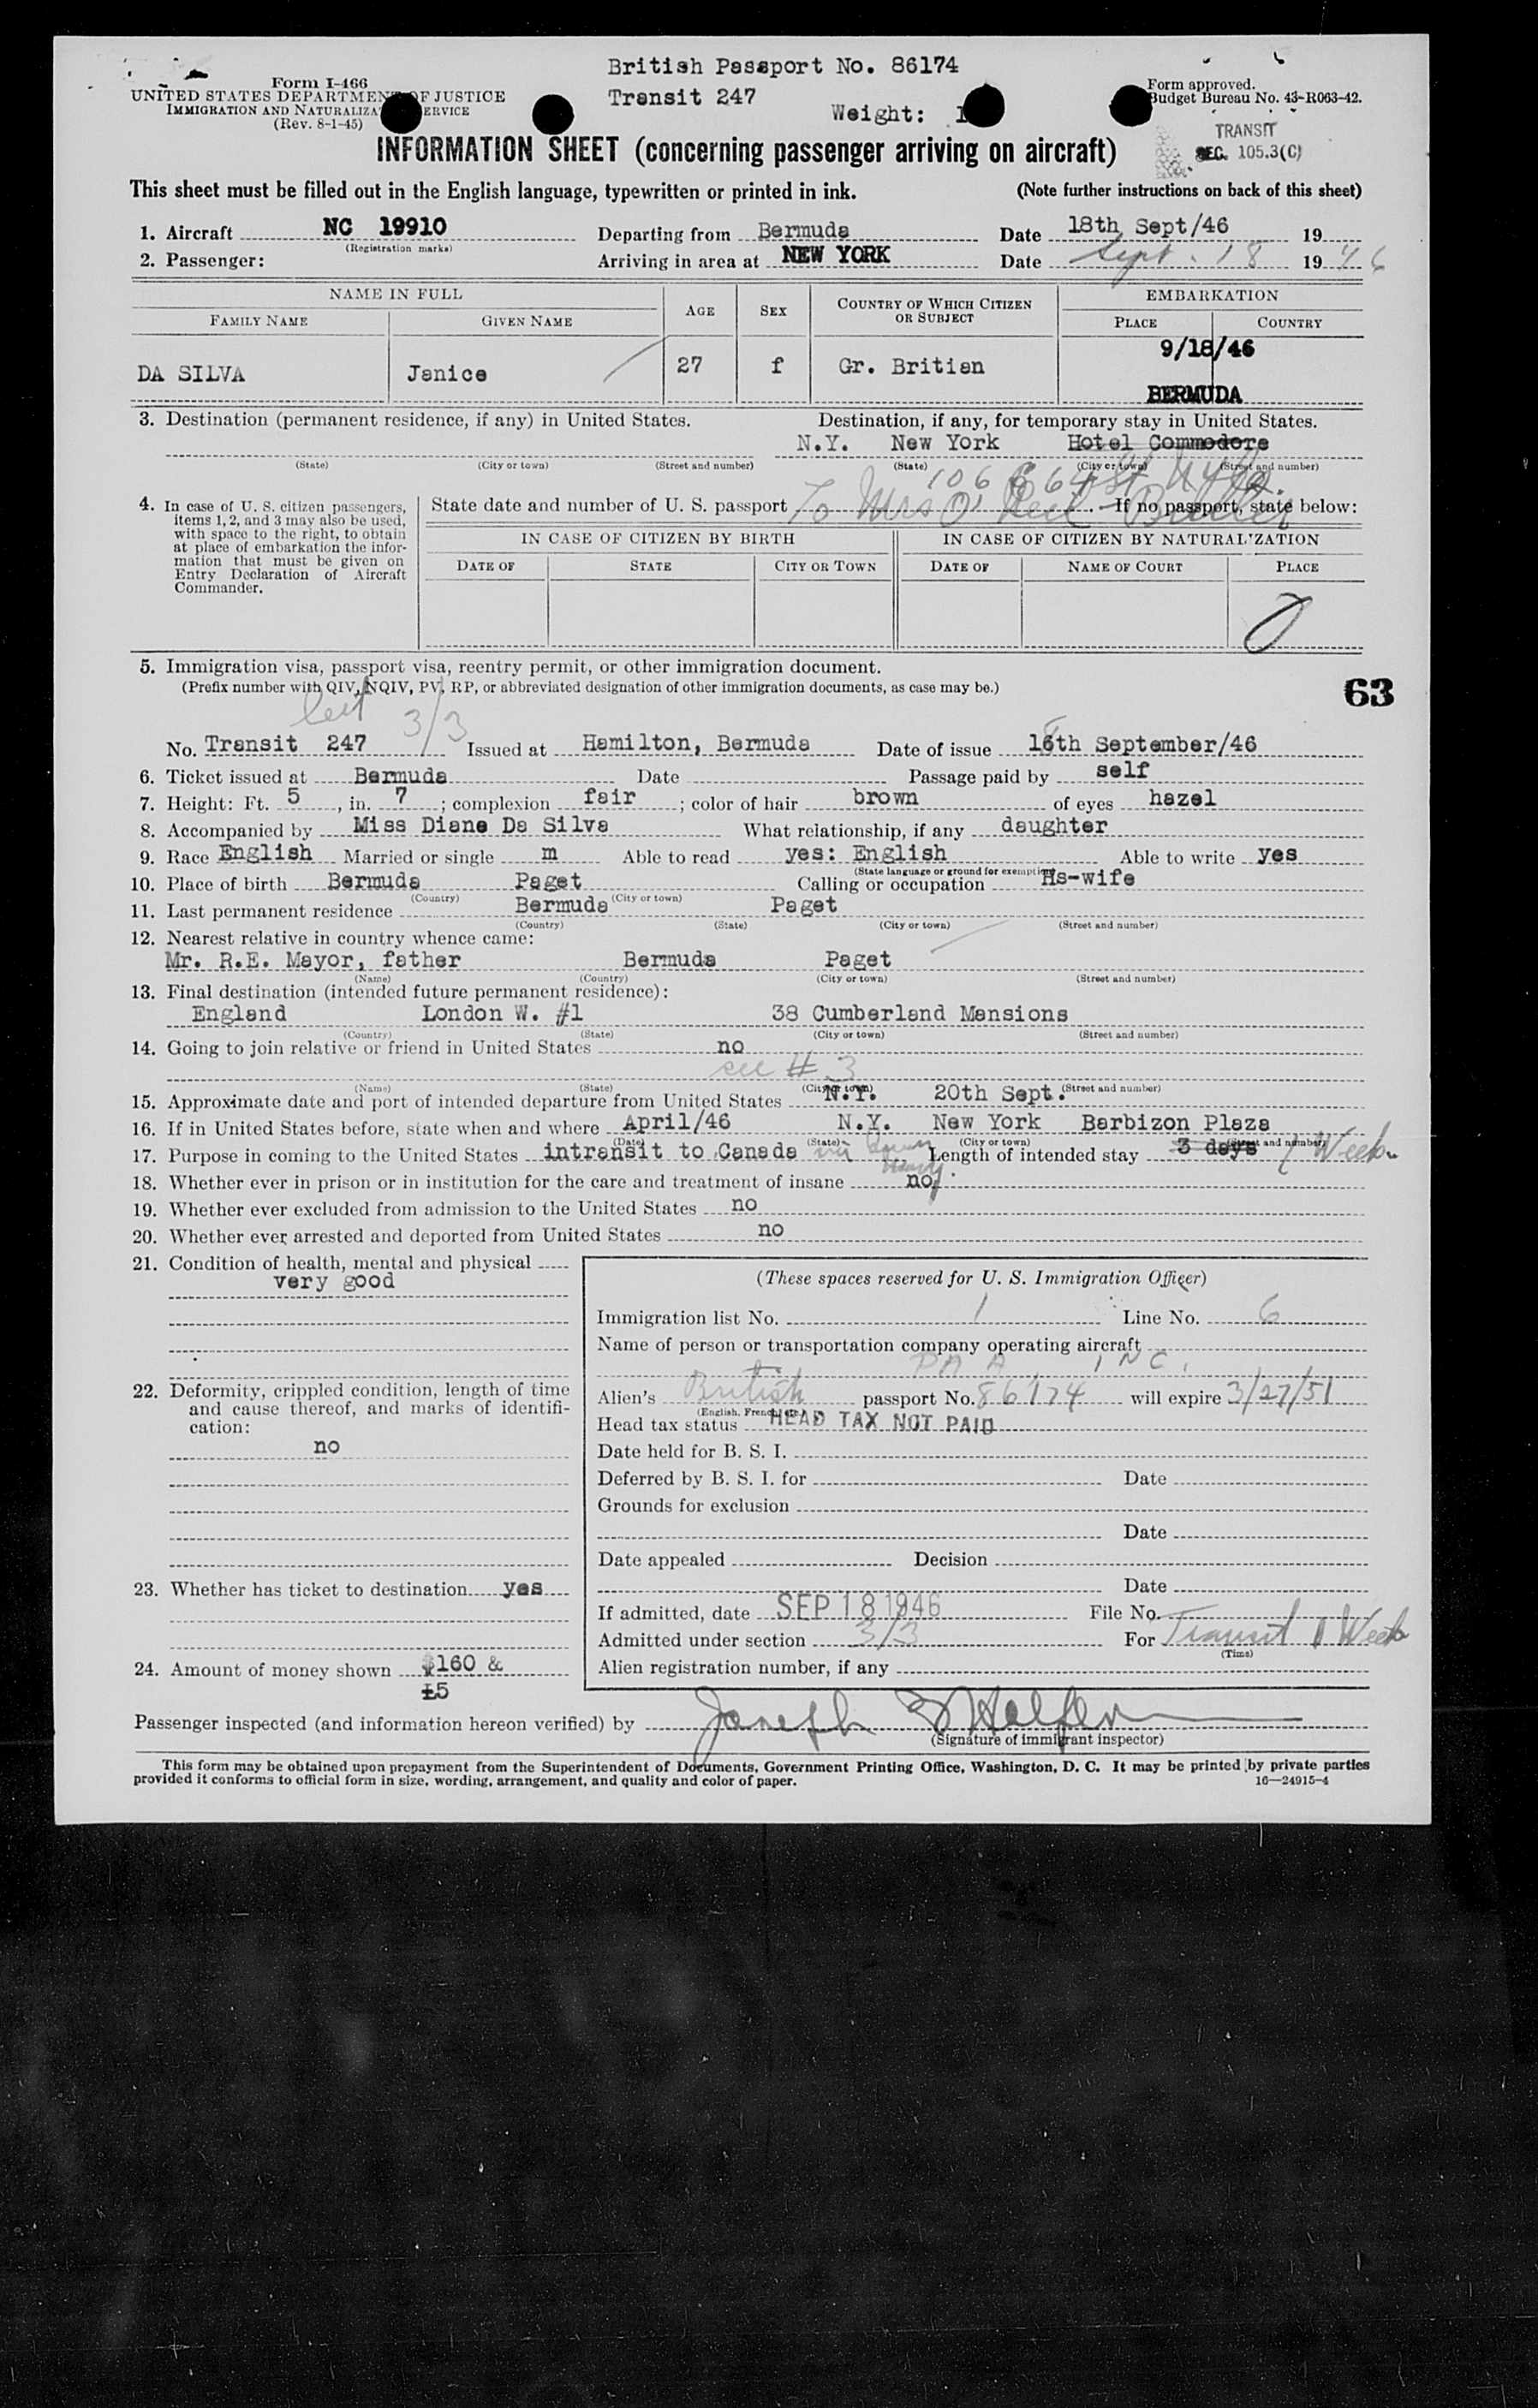 British Passport No. 86174
Form I-466
UNITED STATES DEPARTMENT OF JUSTICE
IMMIGRATION AND NATURALIZATION SERVICE
(Rev. 8-1-45)
Transit 247
Weight:
Form approved.
Budget Bureau No. 43-R063-42.
TRANSIT
SEC. 105.3(C)
INFORMATION SHEET (concerning passenger arriving on aircraft)
This sheet must be filled out in the English language, typewritten or printed in ink. (Note further instructions on back of this sheet)
1. Aircraft NC 19910 Departing from Bermuda Date 18th Sept/46 19
(Registration marks)
2. Passenger: Arriving in area at NEW YORK Date Sept. 18 1946
NAME IN FULL AGE SEX COUNTRY OF WHICH CITIZEN OR SUBJECT EMBARKATION
FAMILY NAME GIVEN NAME PLACE COUNTRY
9/18/46
DA SILVA Janice 27 f Gr. Britian
BERMUDA
3. Destination (permanent residence, if any) in United States. Destination, if any, for temporary stay in United States.
N.Y. New York Hotel Commodore
(State) (City or town) (Street and number) (State) (City or town) (Street and number)
106 E 64 St
4. In case of U. S. citizen passengers, items 1, 2, and 3 may also be used, with space to the right, to obtain at place of embarkation the information that must be given on Entry Declaration of Aircraft Commander.
State date and number of U. S. passport To Mrs If no passport, state below:
IN CASE OF CITIZEN BY BIRTH IN CASE OF CITIZEN BY NATURALIZATION
DATE OF STATE CITY OR TOWN DATE OF NAME OF COURT PLACE
5. Immigration visa, passport visa, reentry permit, or other immigration document.
(Prefix number with QIV, NQIV, PV, RP, or abbreviated designation of other immigration documents, as case may be.)
63
3/3
No. Transit 247 Issued at Hamilton, Bermuda Date of issue 18th September/46
6. Ticket issued at Bermuda Date Passage paid by self
7. Height: Ft. 5, in. 7; complexion fair; color of hair brown of eyes hazel
8. Accompanied by Miss Diane Da Silva What relationship, if any daughter
9. Race English Married or single m Able to read yes: English Able to write yes
(State language or ground for exemption)
10. Place of birth Bermuda Paget Calling or occupation Hs-wife
(Country) (City or town)
11. Last permanent residence Bermuda Paget
(Country) (State) (City or town) (Street and number)
12. Nearest relative in country whence came:
Mr. R.E. Mayor, father Bermuda Paget
(Name) (Country) (City or town) (Street and number)
13. Final destination (intended future permanent residence):
England London W. #1 38 Cumberland Mansions
(Country) (State) (City or town) (Street and number)
14. Going to join relative or friend in United States no
see #3
(Name) (State) (City or town) (Street and number)
15. Approximate date and port of intended departure from United States N.Y. 20th Sept.
16. If in United States before, state when and where April/46 N.Y. New York Barbizon Plaza
(Date) (State) (City or town) (Street and number)
17. Purpose in coming to the United States intransit to Canada via Length of intended stay 3 days 1 Week
18. Whether ever in prison or in institution for the care and treatment of insane no
19. Whether ever excluded from admission to the United States no
20. Whether ever arrested and deported from United States no
21. Condition of health, mental and physical
very good
22. Deformity, crippled condition, length of time and cause thereof, and marks of identification:
no
23. Whether has ticket to destination yes
24. Amount of money shown $160 &
£5
(These spaces reserved for U. S. Immigration Officer)
Immigration list No. 1 Line No. 6
Name of person or transportation company operating aircraft
PAA INC.
Alien's British passport No. 86174 will expire 3/27/51
(English, French, etc.)
Head tax status HEAD TAX NOT PAID
Date held for B. S. I.
Deferred by B. S. I. for Date
Grounds for exclusion
Date
Date appealed Decision
Date
If admitted, date SEP 18 1946 File No.
Admitted under section 3/3 For Transit 1 Week
(Time)
Alien registration number, if any
Passenger inspected (and information hereon verified) by Joseph
(Signature of immigrant inspector)
This form may be obtained upon prepayment from the Superintendent of Documents, Government Printing Office, Washington, D. C. It may be printed by private parties
provided it conforms to official form in size, wording, arrangement, and quality and color of paper. 16—24915-4